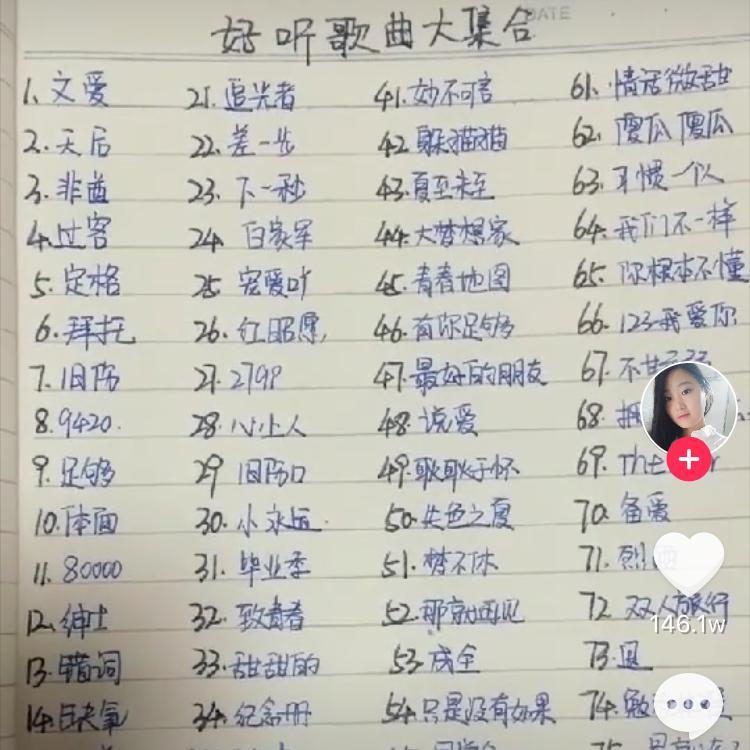 好听歌曲大集合
DATE
1.文爱 21.追光者 41.妙不可言 61.情话微甜
2.天后 22.差一步 42.躲猫猫 62.傻瓜傻瓜
3.非酋 23.下一秒 43.夏至未至 63.习惯一个人
4.过客 24.白家军 44.大梦想家 64.我们不一样
5.定格 25.宠爱 45.青春地图 65.你根本不懂
6.拜托 26.红昭愿 46.有你足够 66.123我爱你
7.旧街 27.279P 47.最好的朋友 67.不甘
8.9420. 28.心上人 48.说爱 68.
9.足够 29.旧街口 49.耿耿于怀 69.The
10.体面 30.小永远 50.失色之夏 70.备爱
11.80000 31.毕业季 51.梦不休 71.烈
12.绅士 32.致青春 52.那就再见 72.双人旅行
13.错词 33.甜甜的 53.成全 73.退
14.缺氧 34.纪念册 54.只是没有如果 74.勉
146.1w